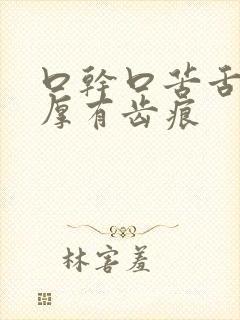 口幹口苦舌
厚有齿痕
林害羞